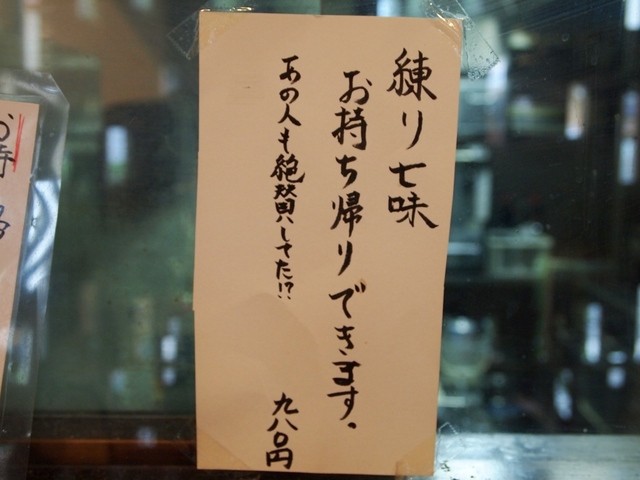 練り七味
お持ち帰りできます。
あの人も絶賛してた!?
九八〇円